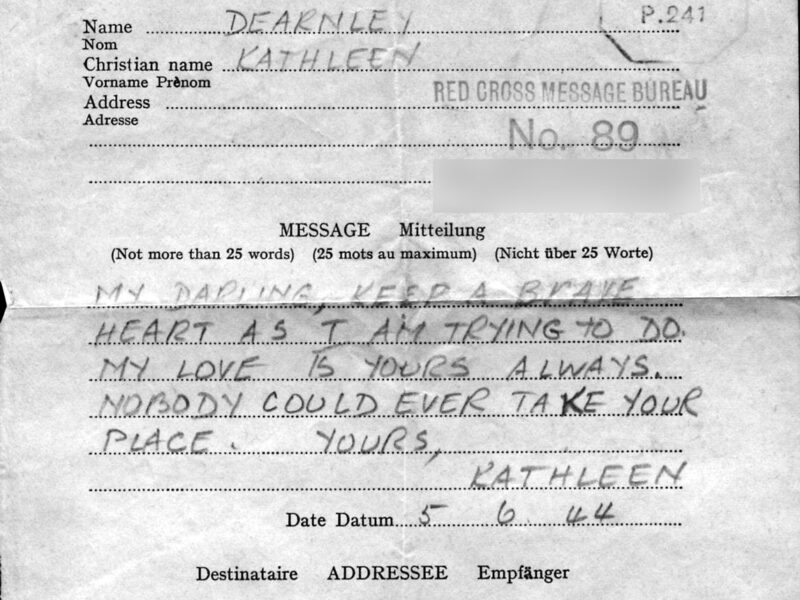 P.241
Name DEARNLEY
Nom
Christian name KATHLEEN
Vorname Prènom
Address
Adresse
RED CROSS MESSAGE BUREAU
No. 89
MESSAGE Mitteilung
(Not more than 25 words) (25 mots au maximum) (Nicht über 25 Worte)
MY DARLING, KEEP A BRAVE
HEART AS I AM TRYING TO DO.
MY LOVE IS YOURS ALWAYS.
NOBODY COULD EVER TAKE YOUR
PLACE. YOURS,
KATHLEEN
Date Datum 5 6 44
Destinataire ADDRESSEE Empfänger